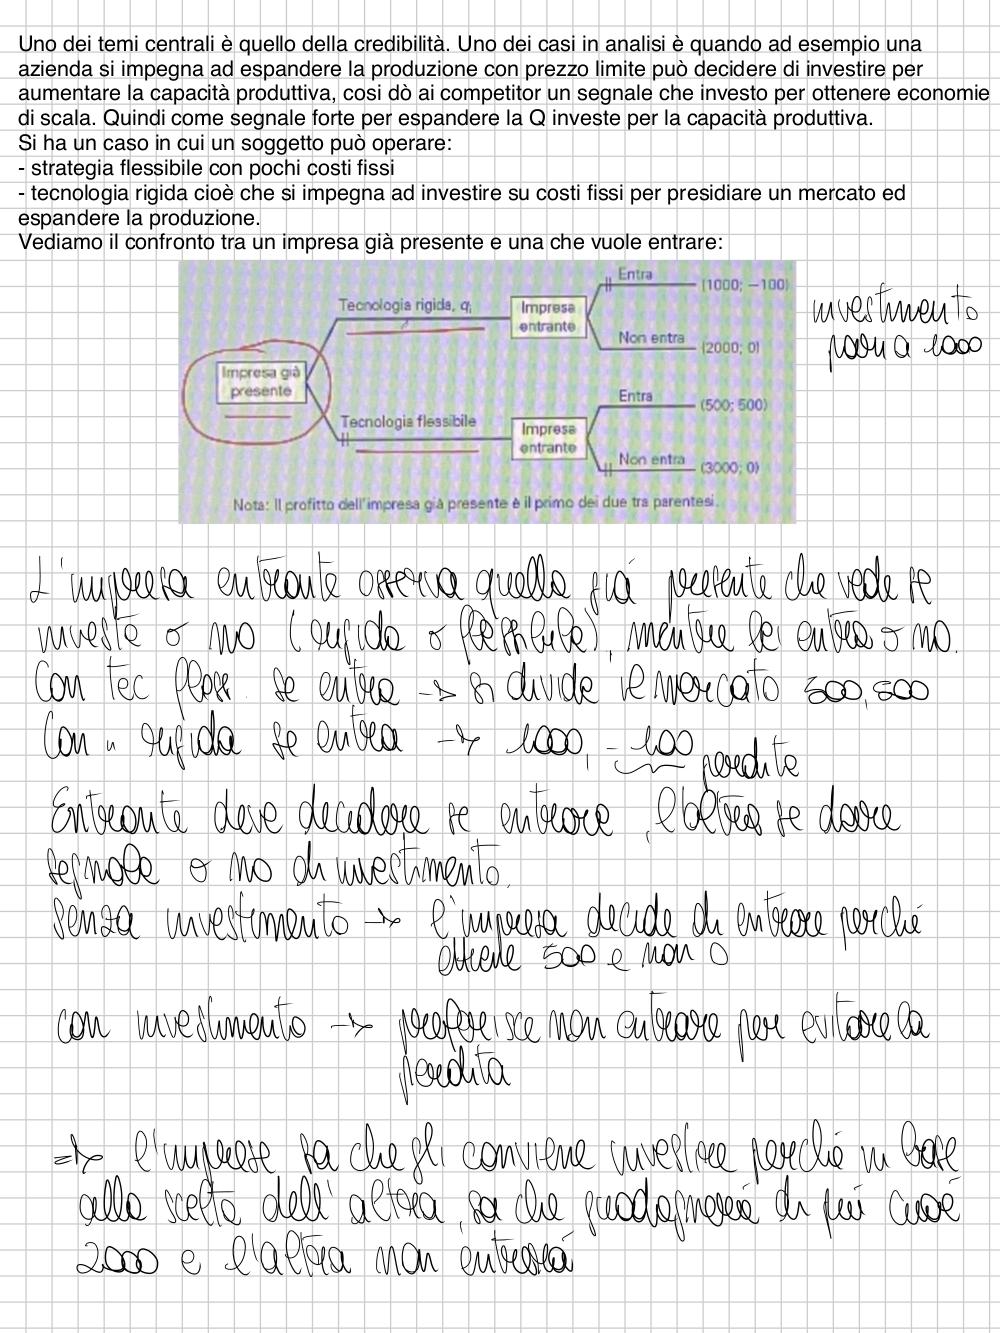 Uno dei temi centrali è quello della credibilità. Uno dei casi in analisi è quando ad esempio una
azienda si impegna ad espandere la produzione con prezzo limite può decidere di investire per
aumentare la capacità produttiva, cosi dò ai competitor un segnale che investo per ottenere economie
di scala. Quindi come segnale forte per espandere la Q investe per la capacità produttiva.
Si ha un caso in cui un soggetto può operare:
- strategia flessibile con pochi costi fissi
- tecnologia rigida cioè che si impegna ad investire su costi fissi per presidiare un mercato ed
espandere la produzione.
Vediamo il confronto tra un impresa già presente e una che vuole entrare:
Entra
(1000; −100)
Tecnologia rigida, qi
Impresa
entrante
Non entra
(2000; 0)
Impresa già
presente
Entra
(500; 500)
Tecnologia flessibile
Impresa
entrante
Non entra
(3000; 0)
Nota: Il profitto dell'impresa già presente è il primo dei due tra parentesi.
investimento
pari a 1000
L'impresa entrante osserva quella già presente che vede se
investe o no (rigida o flessibile), mentre lei entra o no.
Con tec fless. se entra -> si divide il mercato 500,500
Con " rigida se entra -> 1000, -100
perdite
Entrante deve decidere se entrare, l'altra se dare
segnale o no di investimento.
senza investimento -> l'impresa decide di entrare perché
ottiene 500 e non 0
con investimento -> preferisce non entrare per evitare la
perdita
=> l'imprese sa che gli conviene investire perché in base
alla scelta dell'altra, sa che guadagnerà di più cioè
2000 e l'altra non entrerà